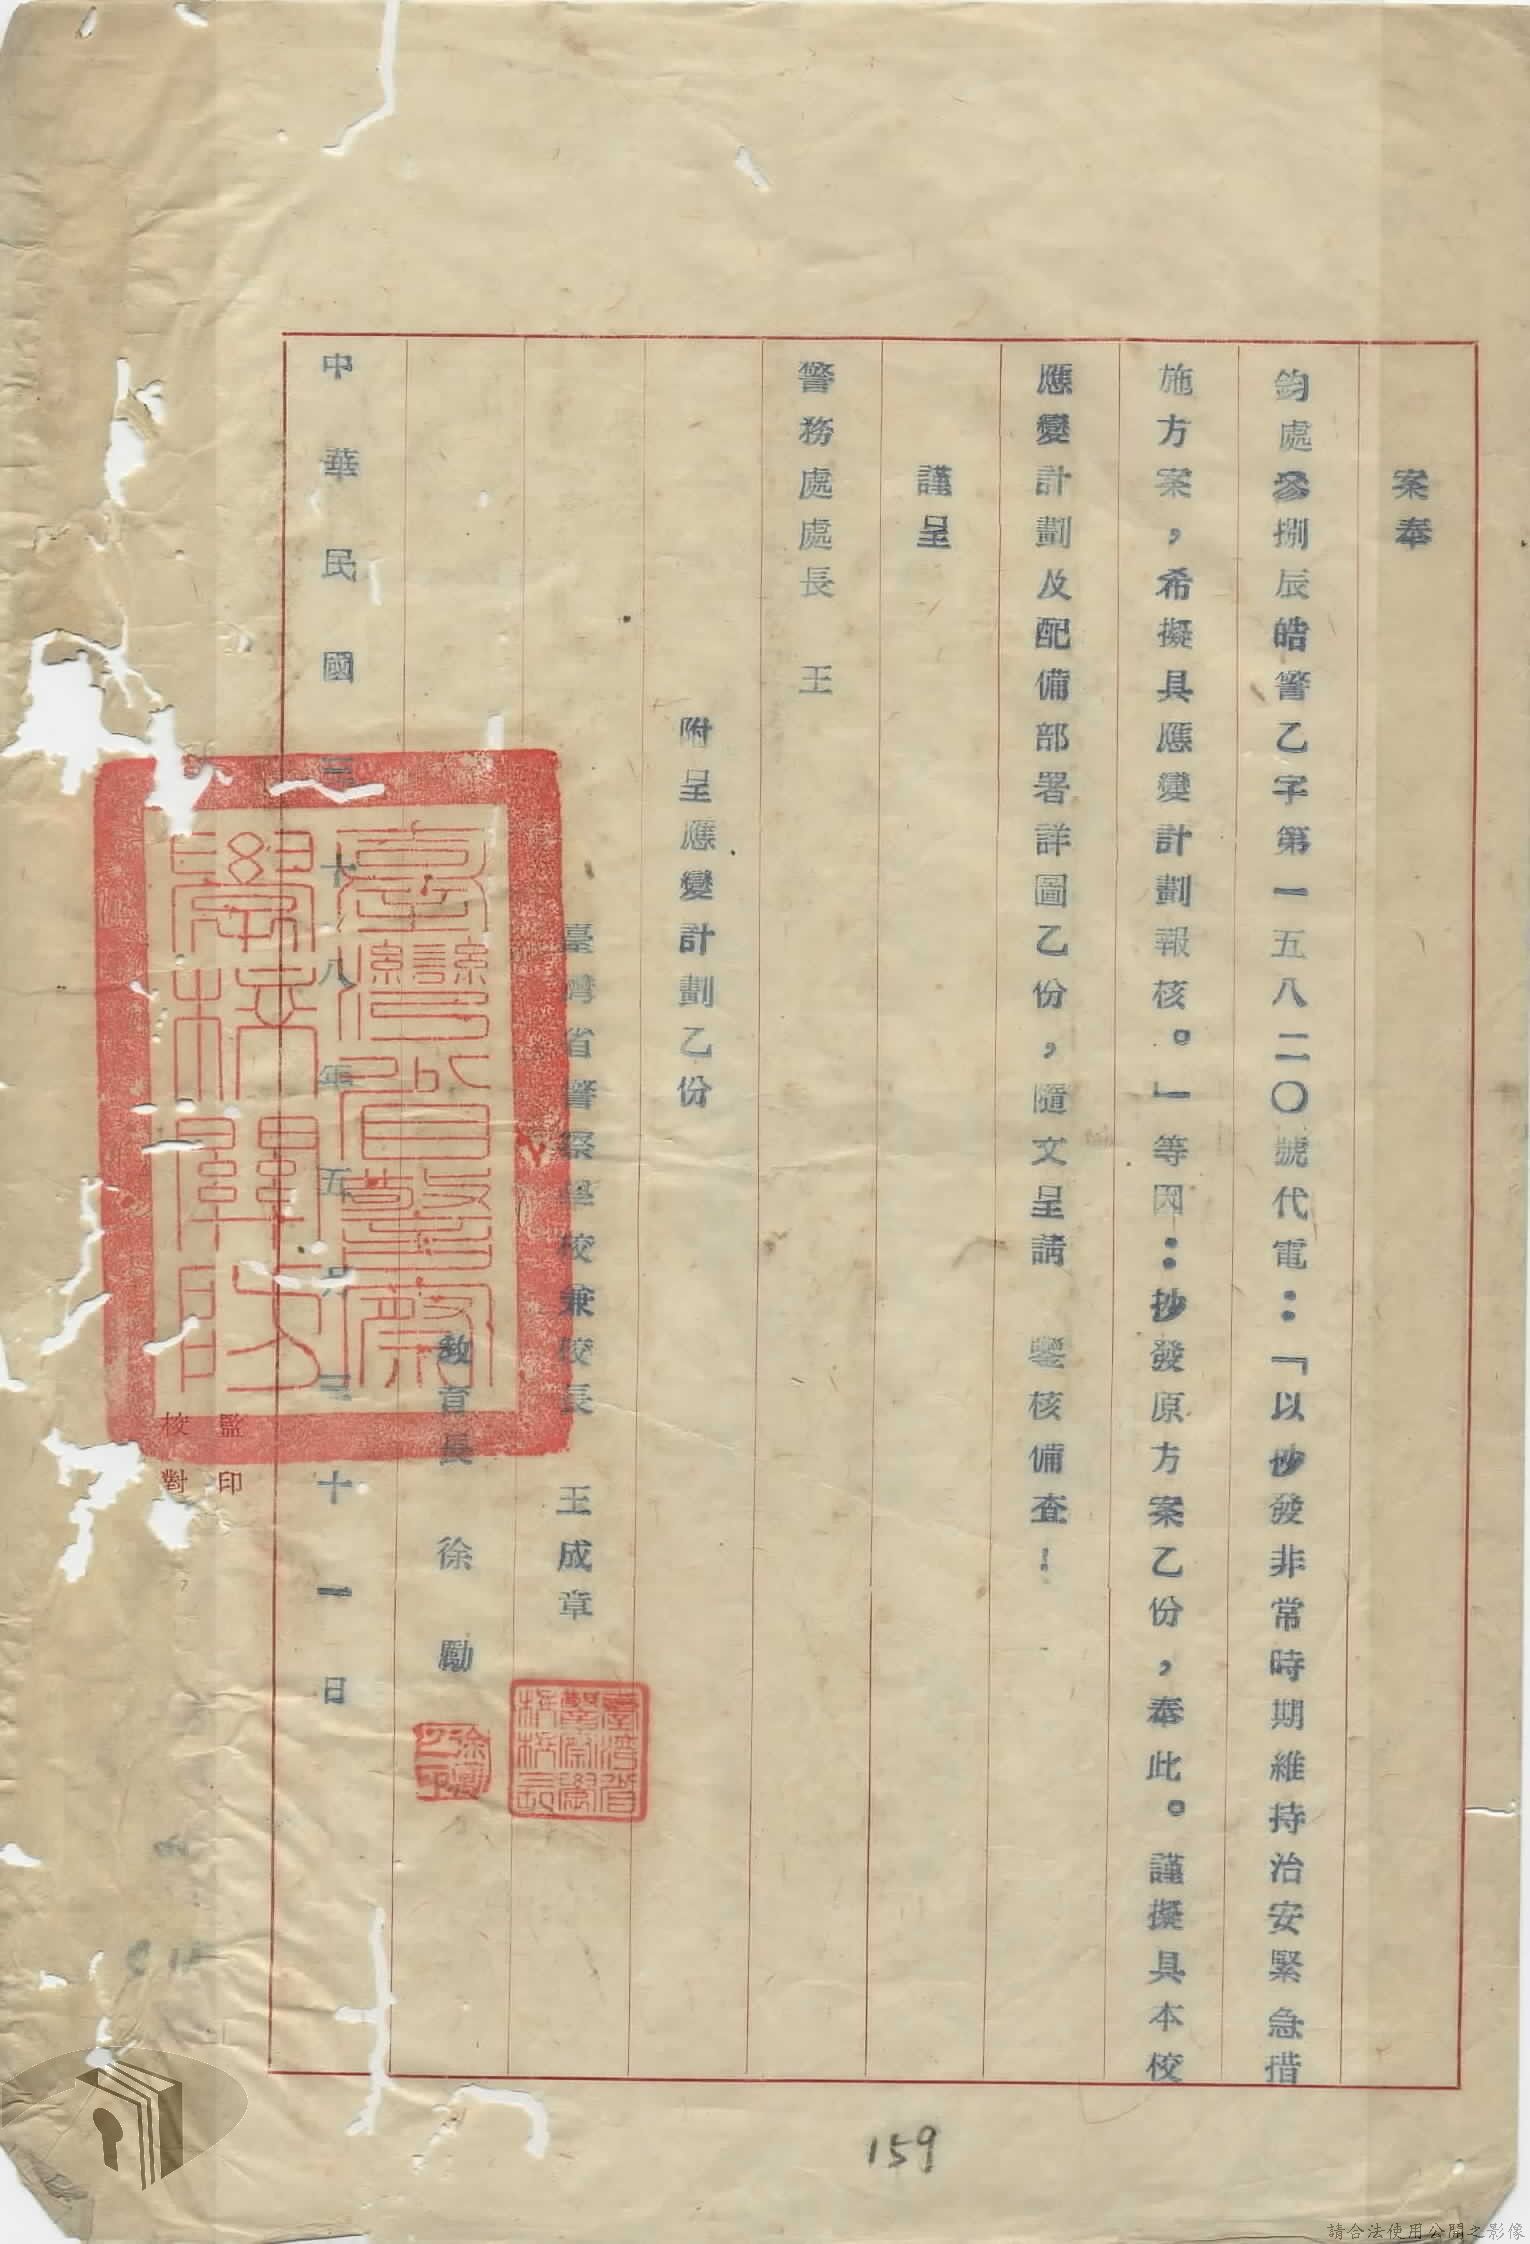 案奉
鈞處參捌辰皓警乙字第一五八二〇號代電：「以抄發非常時期維持治安緊急措
施方案，希擬具應變計劃報核。」等因：抄發原方案乙份，奉此。謹擬具本校
應變計劃及配備部署詳圖乙份，隨文呈請　鑒核備查！
謹呈
警務處處長　王
附呈應變計劃乙份
臺灣省警察學校兼校長　王成章
臺灣省警察學校校長
教育長　徐勵
中華民國三十八年五月三十一日
臺灣省警察學校關防
監印
校對
159
請合法使用公開之影像